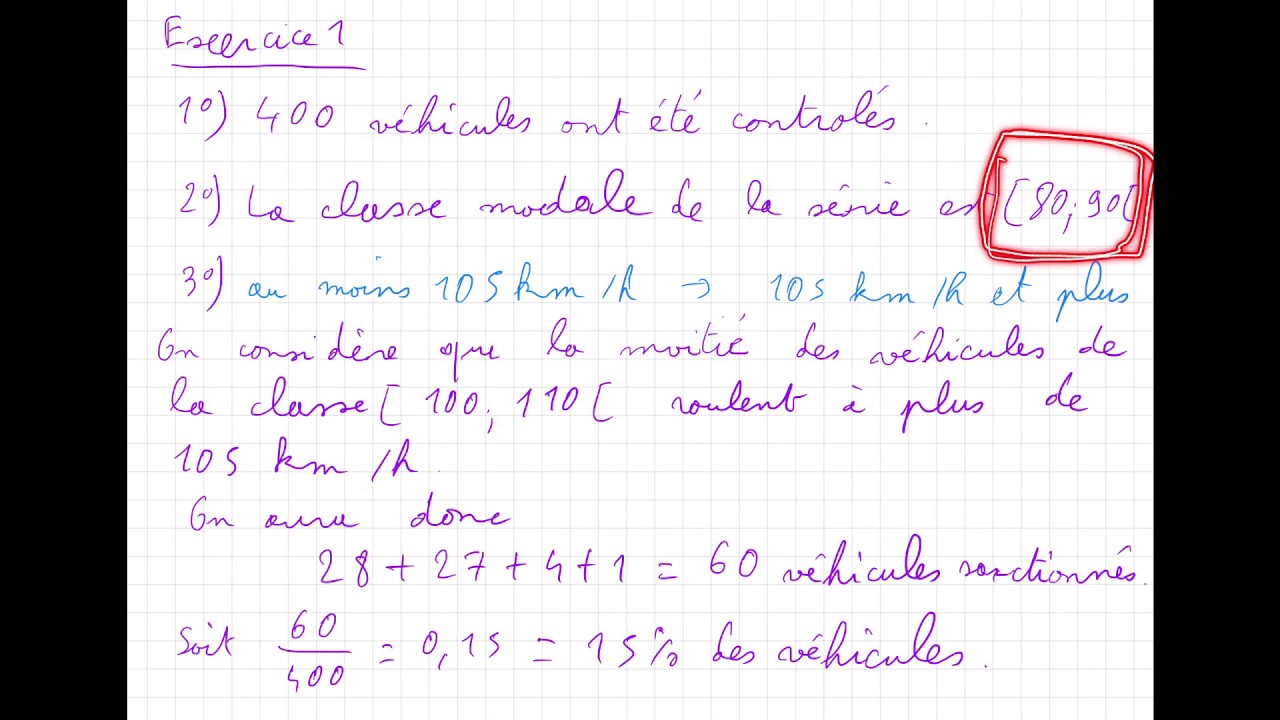 Exercice 1
1°) 400 véhicules ont été contrôlés.
2°) La classe modale de la série est [80; 90[
3°) au moins 105 km/h → 105 km/h et plus
On considère que la moitié des véhicules de
la classe [100; 110[ roulent à plus de
105 km/h.
On aura donc
28 + 27 + 4 + 1 = 60 véhicules sanctionnés.
Soit 60/400 = 0,15 = 15% des véhicules.